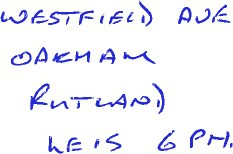 WESTFIELD AVE
OAKHAM
RUTLAND
LE15 6PH.